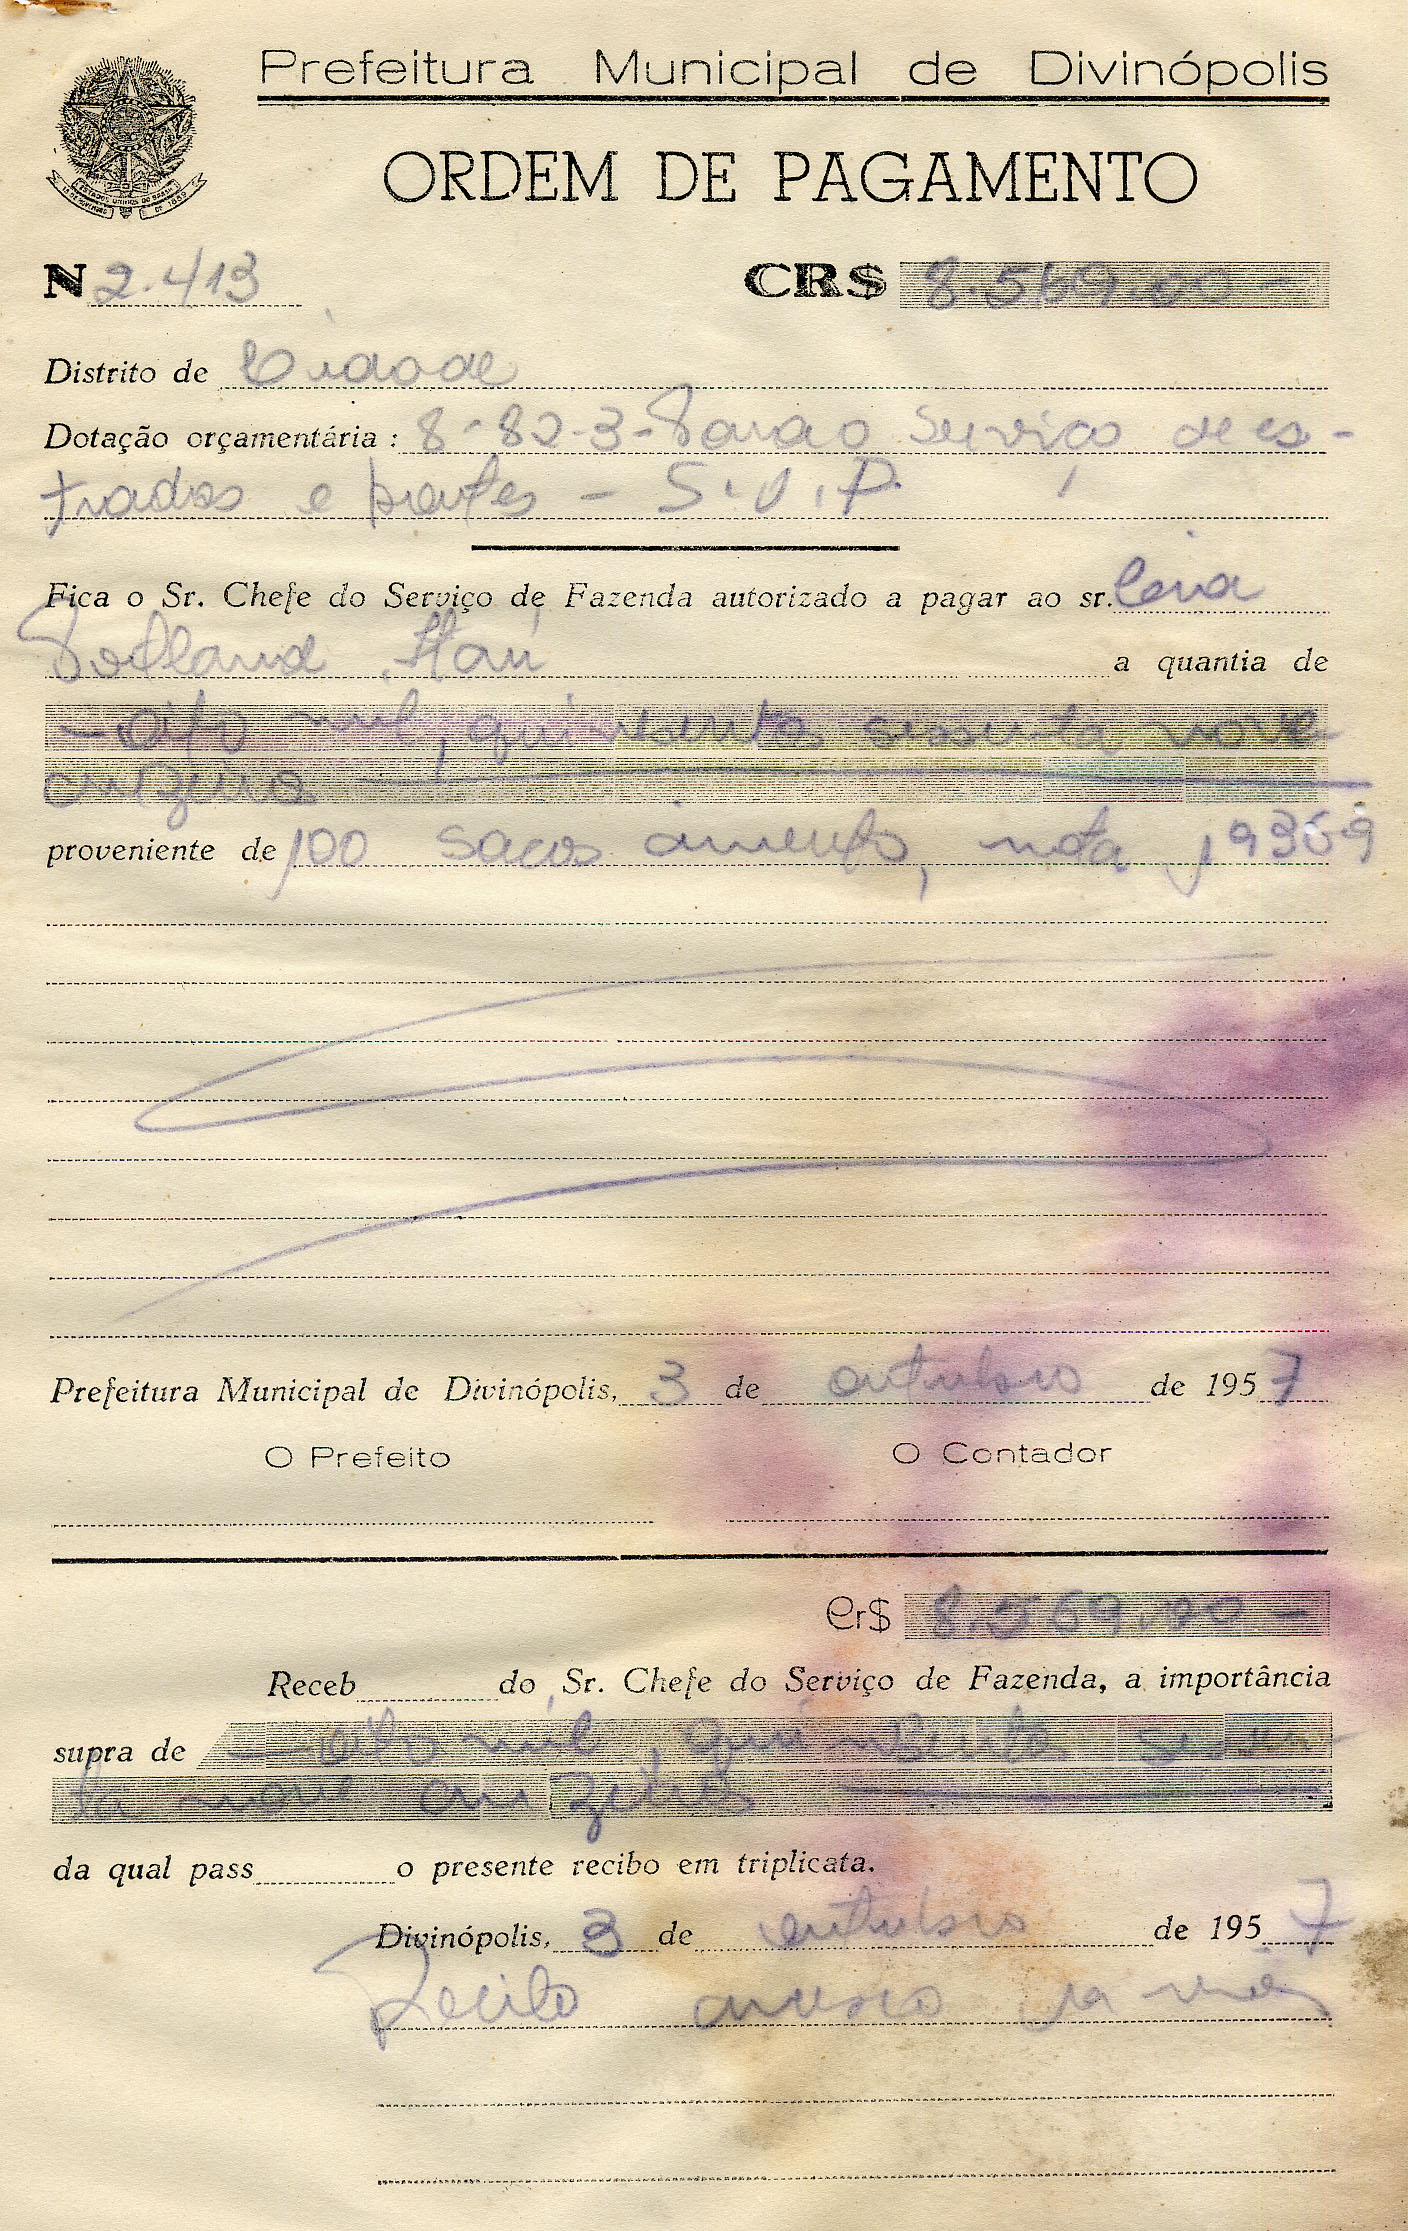 Prefeitura Municipal de Divinópolis
ORDEM DE PAGAMENTO
ESTADOS UNIDOS DO BRASIL
15 DE NOVEMBRO DE 1889
N 2.413 CR$ 8.569,00 -
Distrito de Cidade
Dotação orçamentária: 8-82-3- Para o Serviço de es-
tradas e pontes - S.V.P.
Fica o Sr. Chefe do Serviço de Fazenda autorizado a pagar ao sr. Cia
Portland Itaú a quantia de
- oito mil, quinhentos sessenta nove
cruzeiros
proveniente de 100 sacos cimento, nota 19369
Prefeitura Municipal de Divinópolis, 3 de outubro de 1957
O Prefeito O Contador
Cr$ 8.569,00 -
Receb do Sr. Chefe do Serviço de Fazenda, a importância
supra de - oito mil, quinhentos sessen-
ta nove cruzeiros
da qual pass o presente recibo em triplicata.
Divinópolis, 3 de outubro de 1957
Recibo anexo